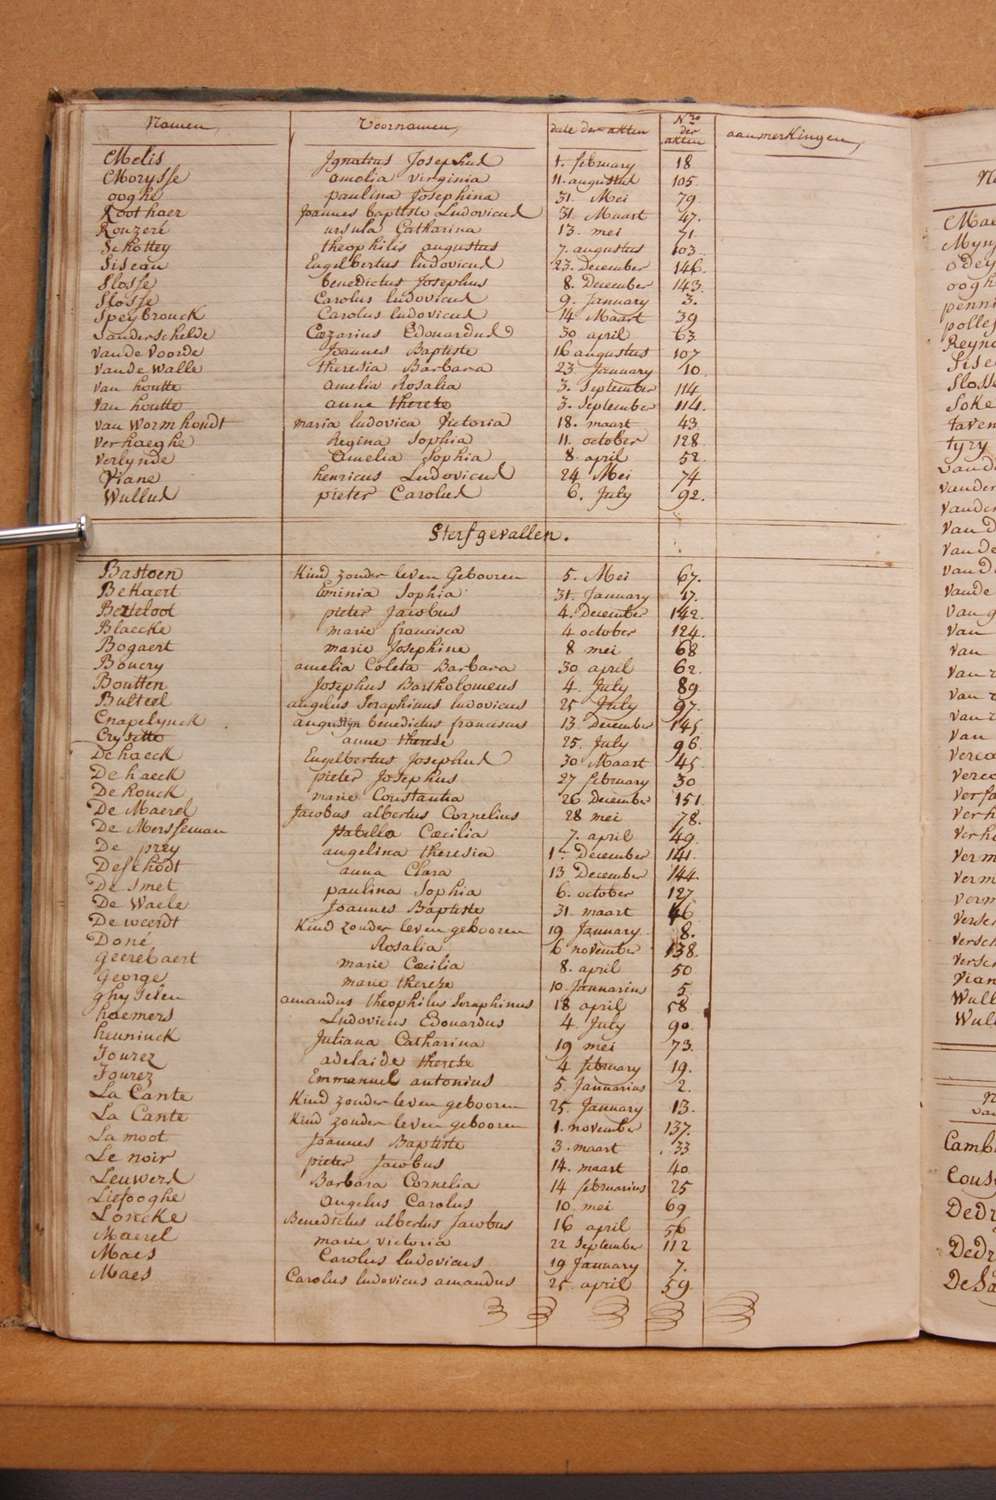 Namen Voornamen date der akten N.ro der akten aanmerkingen
Melis Ignatius Josephus 1. february 18
Morysse amelia virginia 11. augustus 105.
ooghe paulina Josephina 31. Mei 79.
Roothaer Joannes baptiste Ludovicus 31. Maart 47.
Rouzeré ursula Catharina 13. mei 71
Schottey theophilis augustus 7. augustus 103.
Siseau Engelbertus ludovicus 23. December 146.
Slosse benedictus Josephus 8. December 143.
Slosse Carolus ludovicus 9. January 3.
Speybrouck Carolus ludovicus 14. Maart 39
Vanderschelde Cæzarius Edouardus 30 april 63.
Van de Voorde Joannes Baptiste 16 augustus 107
Van de Walle theresia Barbara 23 January 10.
Van houtte amelia Rosalia 3. September 114
Van houtte anne therese 3. September 114.
Van Wormhoudt maria ludovica Victoria 18. maart 43.
Verhaeghe Regina Sophia 11. october 128.
Verlynde amelia Sophia 8. april 52.
Viane henricus Ludovicus 24 Mei 74
Wullus pieter Carolus 6. July 92.
Sterfgevallen.
Bastoen Kind zonder leven Gebooren 5. Mei 67.
Bekaert Eminia Sophia 31. January 17.
Berteloot pieter Jacobus 4. December 142.
Blaecke marie francisca 4 october 124.
Bogaert marie Josephine 8 mei 68
Bouery amelia Coleta Barbara 30 april 62.
Boutten Josephus Bartholomeus 4. July 89
Bulteel angelus Seraphinus ludovicus 25 July 97.
Cnapelynck augustyn benedictus franciscus 13 December 145
Crysette anne therese 25. July 96.
De haeck Engelbertus Josephus 30 Maart 45.
De haeck pieter Josephus 27 february 30
De houck marie Constantia 26 December 151
De Maerel Jacobus albertus Cornelius 28 mei 78.
De Mersseman Natallo Cæcilia 7. april 49.
De prey angelina theresia 1. December 141.
Deschodt anna Clara 13 December 144.
De Smet paulina Sophia 6. october 127
De Waele Joannes Baptiste 31. maart 46
De weerdt Kind zonder leven gebooren 19 January 8.
Doné Rosalia 6 november 138.
Geerebaert marie Cæcilia 8. april 50
George marie therese 10. Januarius 5
ghyselen amandus theophilus Seraphinus 18 april 58
haemers Ludovicus Edouardus 4. July 90.
heuninck Juliana Catharina 19 mei 73.
Jourez adelaide therese 4 february 19.
Jourez Emmanuel antonius 5. Januarius 2.
La Cante Kind zonder leven gebooren 25. January 13.
La Cante Kind zonder leven gebooren 1. november 137.
La moot Joannes Baptiste 3. maart 33
Le noir pieter Jacobus 14. maart 40
Leuwers Barbara Cornelia 14 februarius 25
Liefooghe angelus Carolus 10. mei 69
Loncke Benedictus albertus Jacobus 16 april 56
Maerel marie victoria 22 September 112
Maes Carolus ludovicus 19 January 7.
Maes Carolus ludovicus amandus 25. april 59